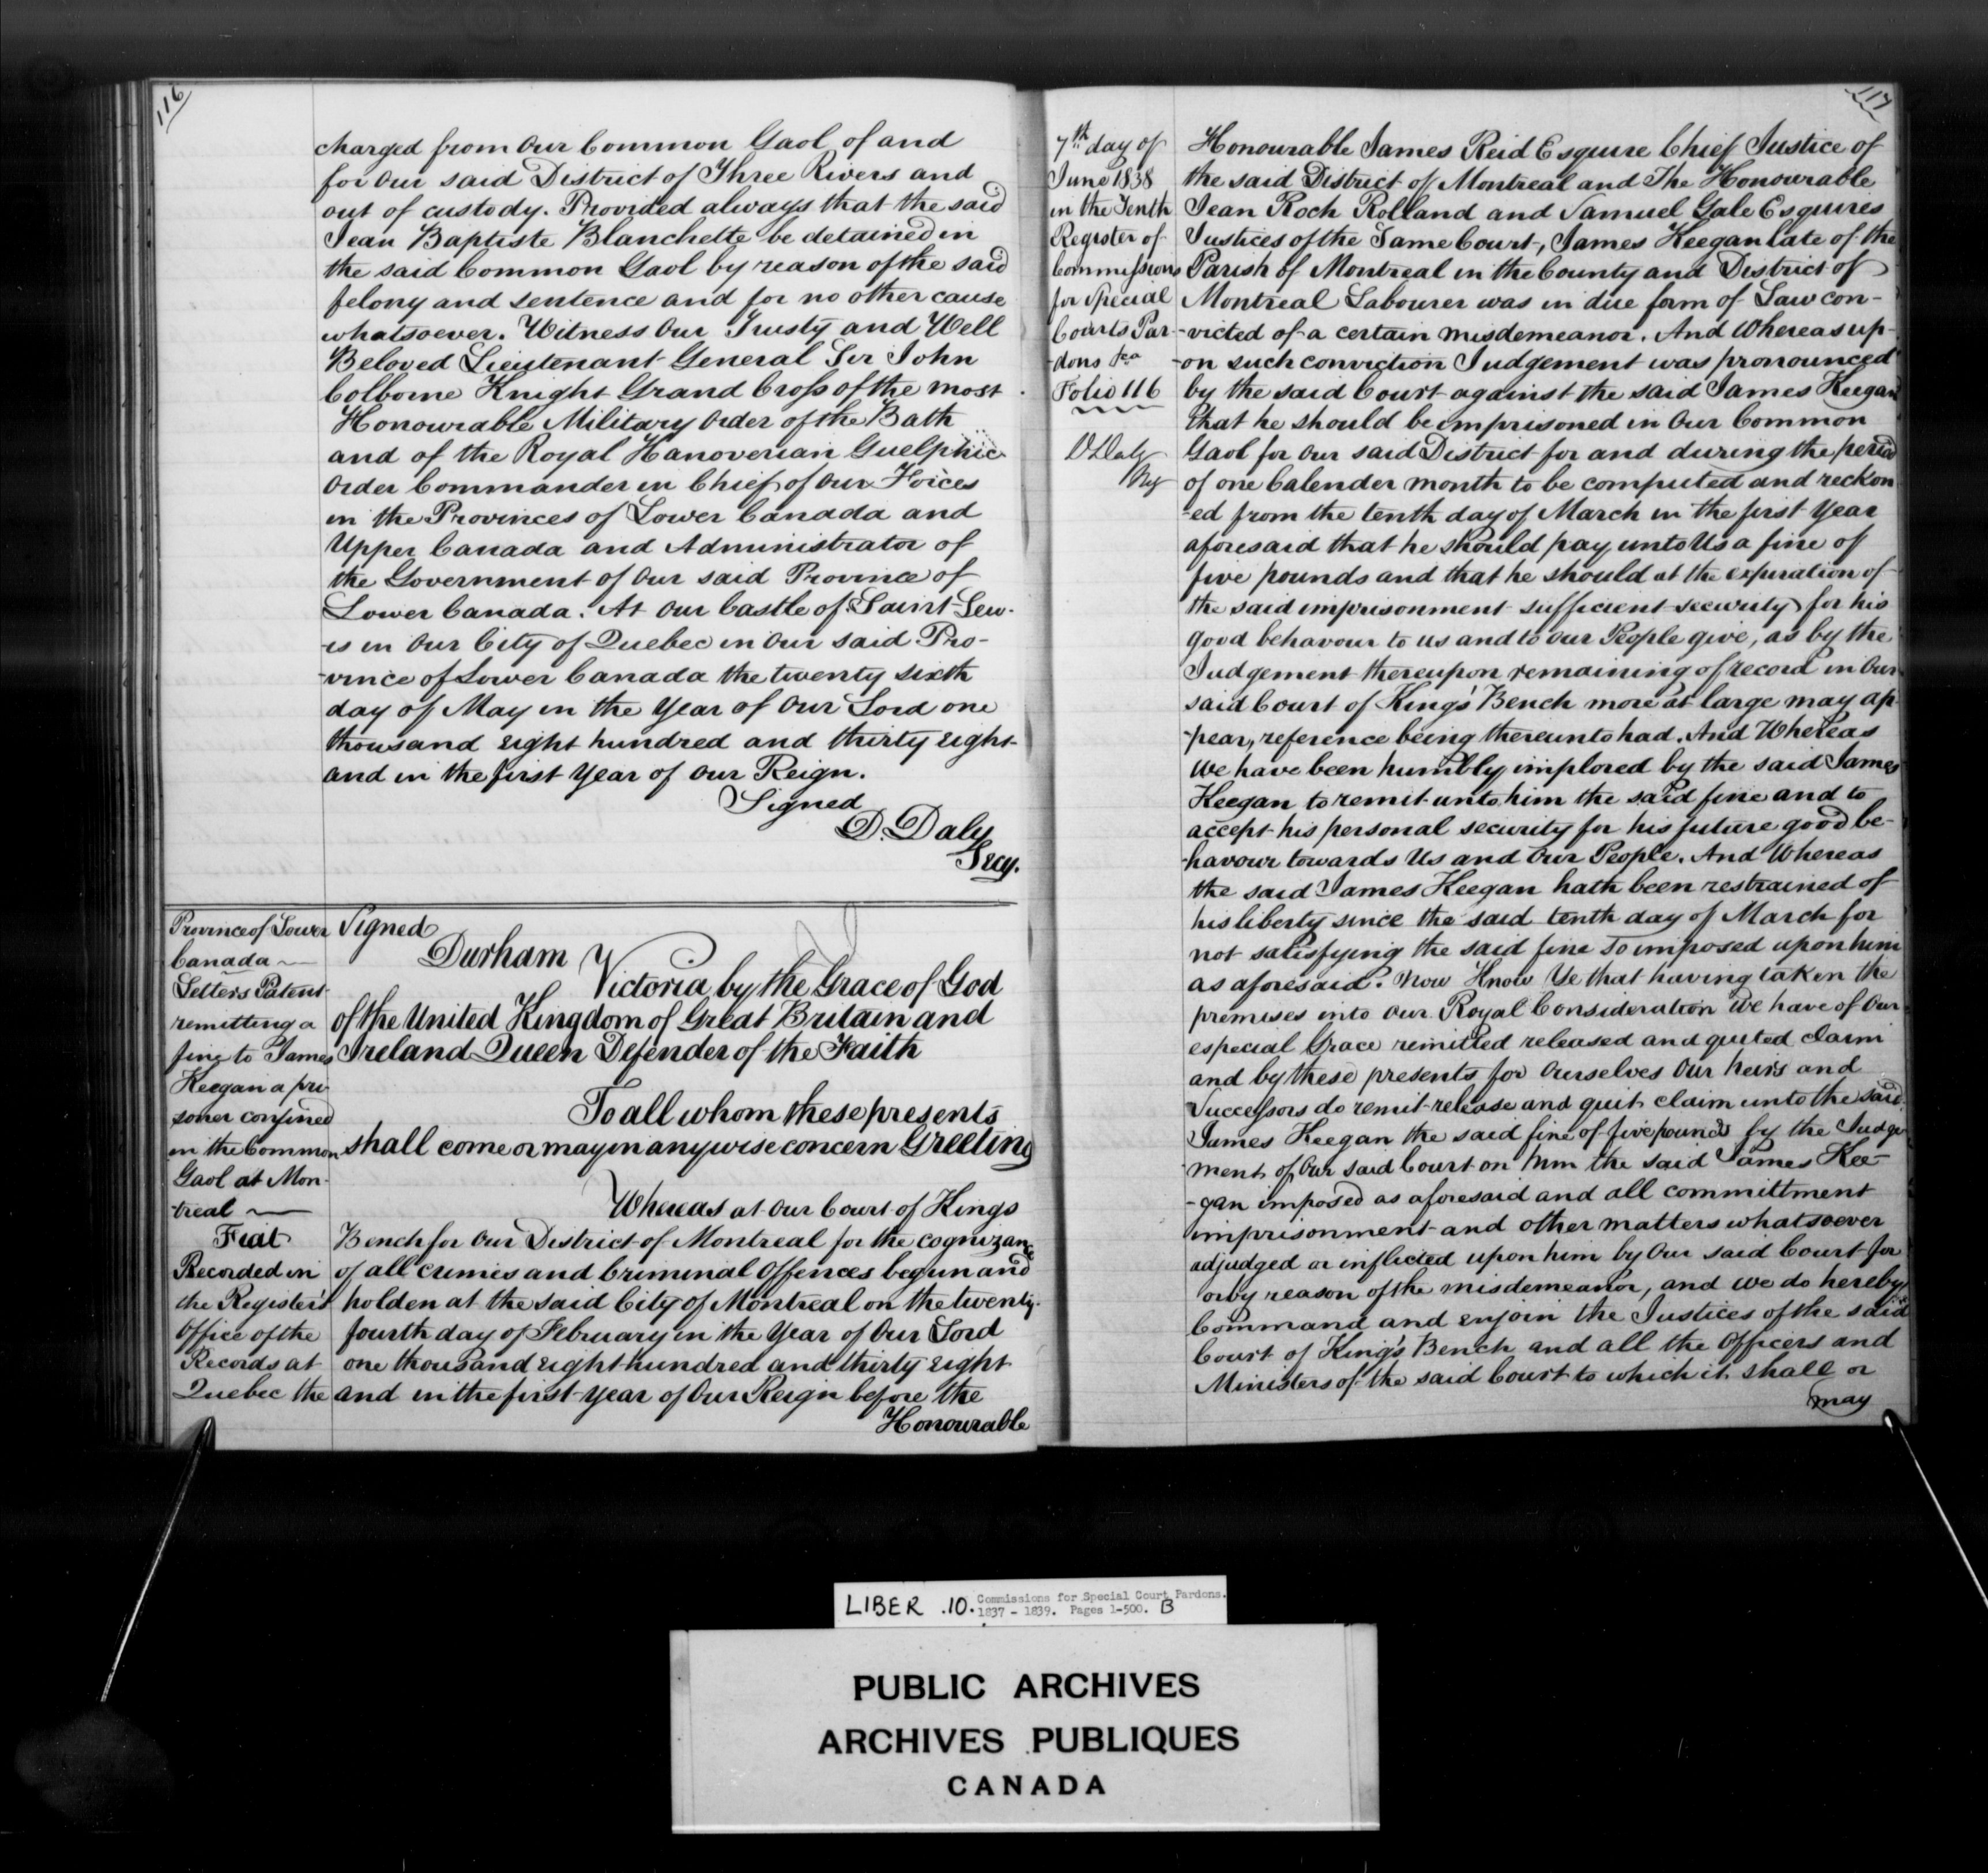 116
charged from Our Common Gaol of and
for Our said District of Three Rivers and
out of custody. Provided always that the said
Jean Baptiste Blanchette be detained in
the said Common Gaol by reason of the said
felony and sentence and for no other cause
whatsoever. Witness Our Trusty and Well
Beloved Lieutenant General Sir John
Colborne Knight Grand Cross of the most
Honourable Military Order of the Bath
and of the Royal Hanoverian Guelphic
Order Commander in Chief of Our Forces
in the Provinces of Lower Canada and
Upper Canada and Administrator of
the Government of Our said Province of
Lower Canada. At Our Castle of Saint Lew-
-is in Our City of Quebec in Our said Pro-
-vince of Lower Canada the twenty sixth
day of May in the Year of Our Lord one
thousand eight hundred and thirty eight
and in the first Year of Our Reign.
Signed
D. Daly
Secy.
Province of Lower
Canada
Letters Patent
remitting a
fine to James
Keegan a pri-
soner confined
in the Common
Gaol at Mon-
treal
Fiat
Recorded in
the Register's
Office of the
Records at
Quebec the
Signed
Durham
Victoria by the Grace of God
of the United Kingdom of Great Britain and
Ireland Queen Defender of the Faith
To all whom these presents
shall come or may in anywise concern Greeting
Whereas at Our Court of Kings
Bench for Our District of Montreal for the cognizance
of all crimes and Criminal Offences begun and
holden at the said City of Montreal on the twenty-
fourth day of February in the Year of Our Lord
one thousand eight hundred and thirty eight
and in the first Year of Our Reign before the
Honourable
117
7th day of
June 1838
in the Tenth
Register of
Commissions
for Special
Courts Par-
-dons &ca
Folio 116
D Daly
Reg
Honourable James Reid Esquire Chief Justice of
the said District of Montreal and The Honourable
Jean Roch Rolland and Samuel Gale Esquires
Justices of the Same Court, James Keegan late of the
Parish of Montreal in the County and District of
Montreal Labourer was in due form of Law con-
-victed of a certain misdemeanor. And Whereas up-
-on such conviction Judgement was pronounced
by the said Court against the said James Keegan
that he should be imprisoned in Our Common
Gaol for Our said District for and during the period
of one Calender month to be computed and reckon
-ed from the tenth day of March in the first Year
aforesaid that he should pay unto Us a fine of
five pounds and that he should at the expiration of
the said imprisonment sufficient security for his
good behavour to us and to our People give, as by the
Judgement thereupon remaining of record in Our
said Court of King's Bench more at large may ap-
-pear, reference being thereunto had. And Whereas
We have been humbly implored by the said James
Keegan to remit unto him the said fine and to
accept his personal security for his future good be-
-havour towards Us and Our People. And Whereas
the said James Keegan hath been restrained of
his liberty since the said tenth day of March for
not satisfying the said fine so imposed upon him
as aforesaid. Now Know Ye that having taken the
premises into Our Royal Consideration We have of Our
especial Grace remitted released and quited claim
and by these presents for Ourselves Our heirs and
Successors do remit release and quit claim unto the said
James Keegan the said fine of five pounds by the Judge-
-ment of Our said Court on him the said James Kee-
-gan imposed as aforesaid and all committment
imprisonment and other matters whatsoever
adjudged or inflicted upon him by Our said Court for
or by reason of the misdemeanor, and we do hereby
Command and enjoin the Justices of the said
Court of King's Bench and all the Officers and
Ministers of the said Court to which it shall or
may
LIBER .10. Commissions for Special Court Pardons.
1837 - 1839. Pages 1-500. B
PUBLIC ARCHIVES
ARCHIVES PUBLIQUES
CANADA